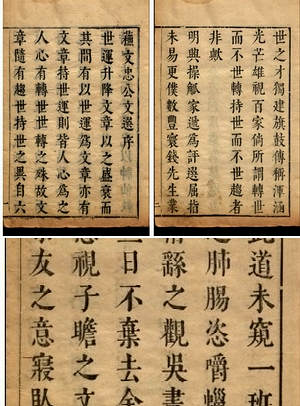 蘓文忠公文選序
世運升降文章以之盛衰而
其間有以世運為文章亦有
文章持世運則皆人心為之
人心有轉世世轉之殊故文
章隨有趨世持世之異自六
世之才獨建旗鼓傳稱渾涵
光芒雄視百家倘所謂轉世
而不世轉持世而不世趨者
非歟
明興操觚家遞為評選屈指
未易更僕數豊寰錢先生業
此道未窺一班
之肺腸恣嚼蠟
繇之觀吳書
日不棄去
視子瞻之文
友之意寢臥